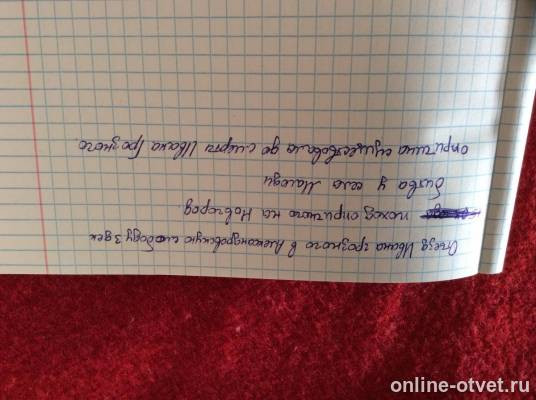 Отъезд Ивана грозного в Александровскую слободу 3 дек
поход опричного на Новгород.
битва у села Молоди
опричнина существовала до смерти Ивана Грозного.
online-otvet.ru